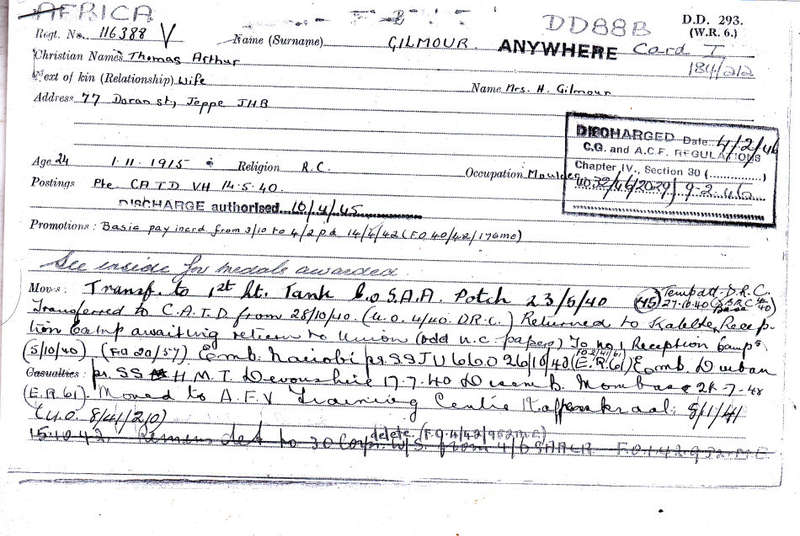 AFRICA
DD88B D.D. 293.
(W.R. 6.)
Regt. No. 116388 V Name (Surname) GILMOUR. ANYWHERE Card I
184/212
Christian Names Thomas Arthur
Next of kin (Relationship) Wife Name Mrs. H. Gilmour
Address 77 Doran St, Jeppe JHB
DISCHARGED Date 4/2/46
C.G. and A.C.F. REGULATIONS
Chapter IV., Section 30 (............)
9-2-46
Age 24 1.11.1915 Religion R.C. Occupation Moulder
Postings Pte. C.A.T.D VH 14.5.40.
DISCHARGE authorised 10/4/45
Promotions: Basic pay incrd from 3/10 to 4/2 p.d. 14/5/42 (F.O 40/42/17 )
See inside for medals awarded.
Moves: Transf. to 1st Lt. Tank Co S.A.A. Potch 23/5/40 D.R.C.
27-10-40
Transferred to C.A.T.D from 28/10/40. (U.O. 4/40. D.R.C.) Returned to Recep-
tion Camp awaiting return to Union (odd papers) To No 1 Reception Camp
(5/10/40). (F.O 20/57) Emb. Nairobi pr. SS JU 6660 26/10/40 (E.R. 61) Emb. Durban
Casualties: pr. SS H.M.T. Devonshire 17-7-40 Disemb. Mombasa 2 -7-40
(E.R. 61). Moved to A.F.V Training Centre Kafferskraal. 5/1/41
(U.O. 8/41/210) delete (F.O. 4/42/952 M.E.)
15.10.42. Remains det to 30 Corps. W/S. from 4/6 SAACR F.O.1.42.952 M.E.